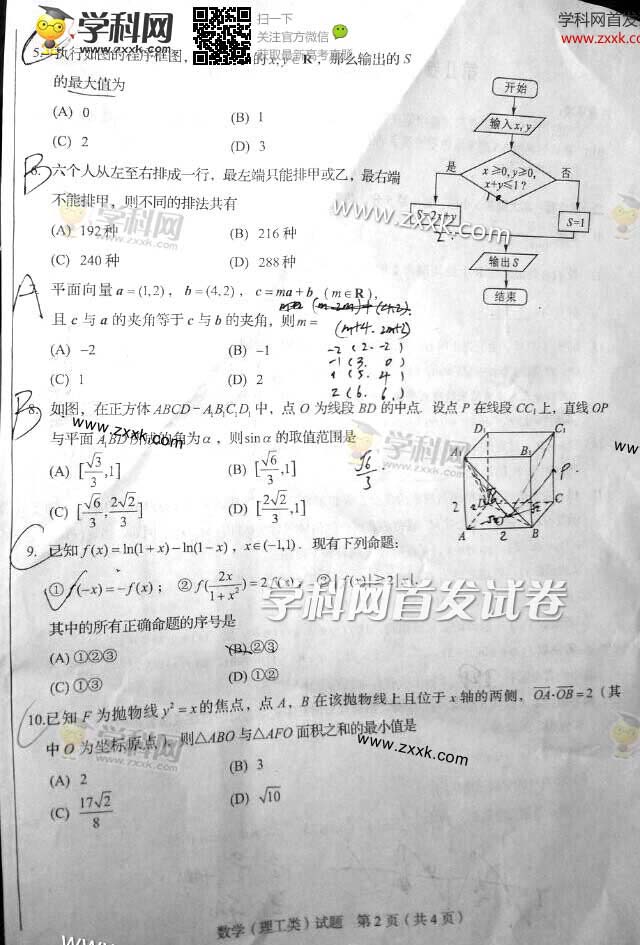 学科网
www.zxxk.com
扫一下
关注官方微信
获取最新高考真题
学科网首发
www.zxxk
C
5. 执行如图的程序框图, 的x,y∈R,那么输出的S
的最大值为
(A) 0 (B) 1
(C) 2 (D) 3
开始
输入x,y
x≥0,y≥0,
x+y≤1?
是
否
S=2x+y
S=1
输出S
结束
B
6. 六个人从左至右排成一行,最左端只能排甲或乙,最右端
不能排甲,则不同的排法共有
学科网
www.zxxk.com
(A) 192种 (B) 216种
(C) 240种 (D) 288种
平面向量a=(1,2), b=(4,2), c=ma+b (m∈R),
且c与a的夹角等于c与b的夹角,则m=
(m+4, 2m+2)
(A) -2 (B) -1
(C) 1 (D) 2
-2 (2, -2)
-1 (3, 0)
1 (5, 4)
2 (6, 6)
B
8. 如图,在正方体ABCD-A₁B₁C₁D₁中,点O为线段BD的中点. 设点P在线段CC₁上,直线OP
与平面A₁BD所成的角为α,则sinα的取值范围是
www.zxxk.com
学科网
(A) [√3/3,1] (B) [√6/3,1]
√6/3
(C) [√6/3,2√2/3] (D) [2√2/3,1]
D₁ C₁
A₁ B₁
P
C
A B
2
2
C
9. 已知f(x)=ln(1+x)-ln(1-x),x∈(-1,1). 现有下列命题:
① f(-x)=-f(x); ② f(2x/(1+x²))=2f(x)
学科网首发试卷
其中的所有正确命题的序号是
(A) ①②③ (B) ②③
(C) ①③ (D) ①②
10. 已知F为抛物线y²=x的焦点,点A,B在该抛物线上且位于x轴的两侧,OA·OB=2(其
中O为坐标原点),则△ABO与△AFO面积之和的最小值是
www.zxxk.com
(A) 2 (B) 3
(C) 17√2/8 (D) √10
学科网
www.zxxk.com
数学(理工类)试题 第2页(共4页)